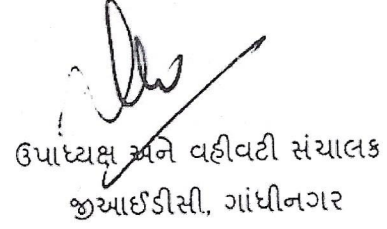 ઉપાધ્યક્ષ અને વહીવટી સંચાલક
જીઆઈડીસી, ગાંધીનગર